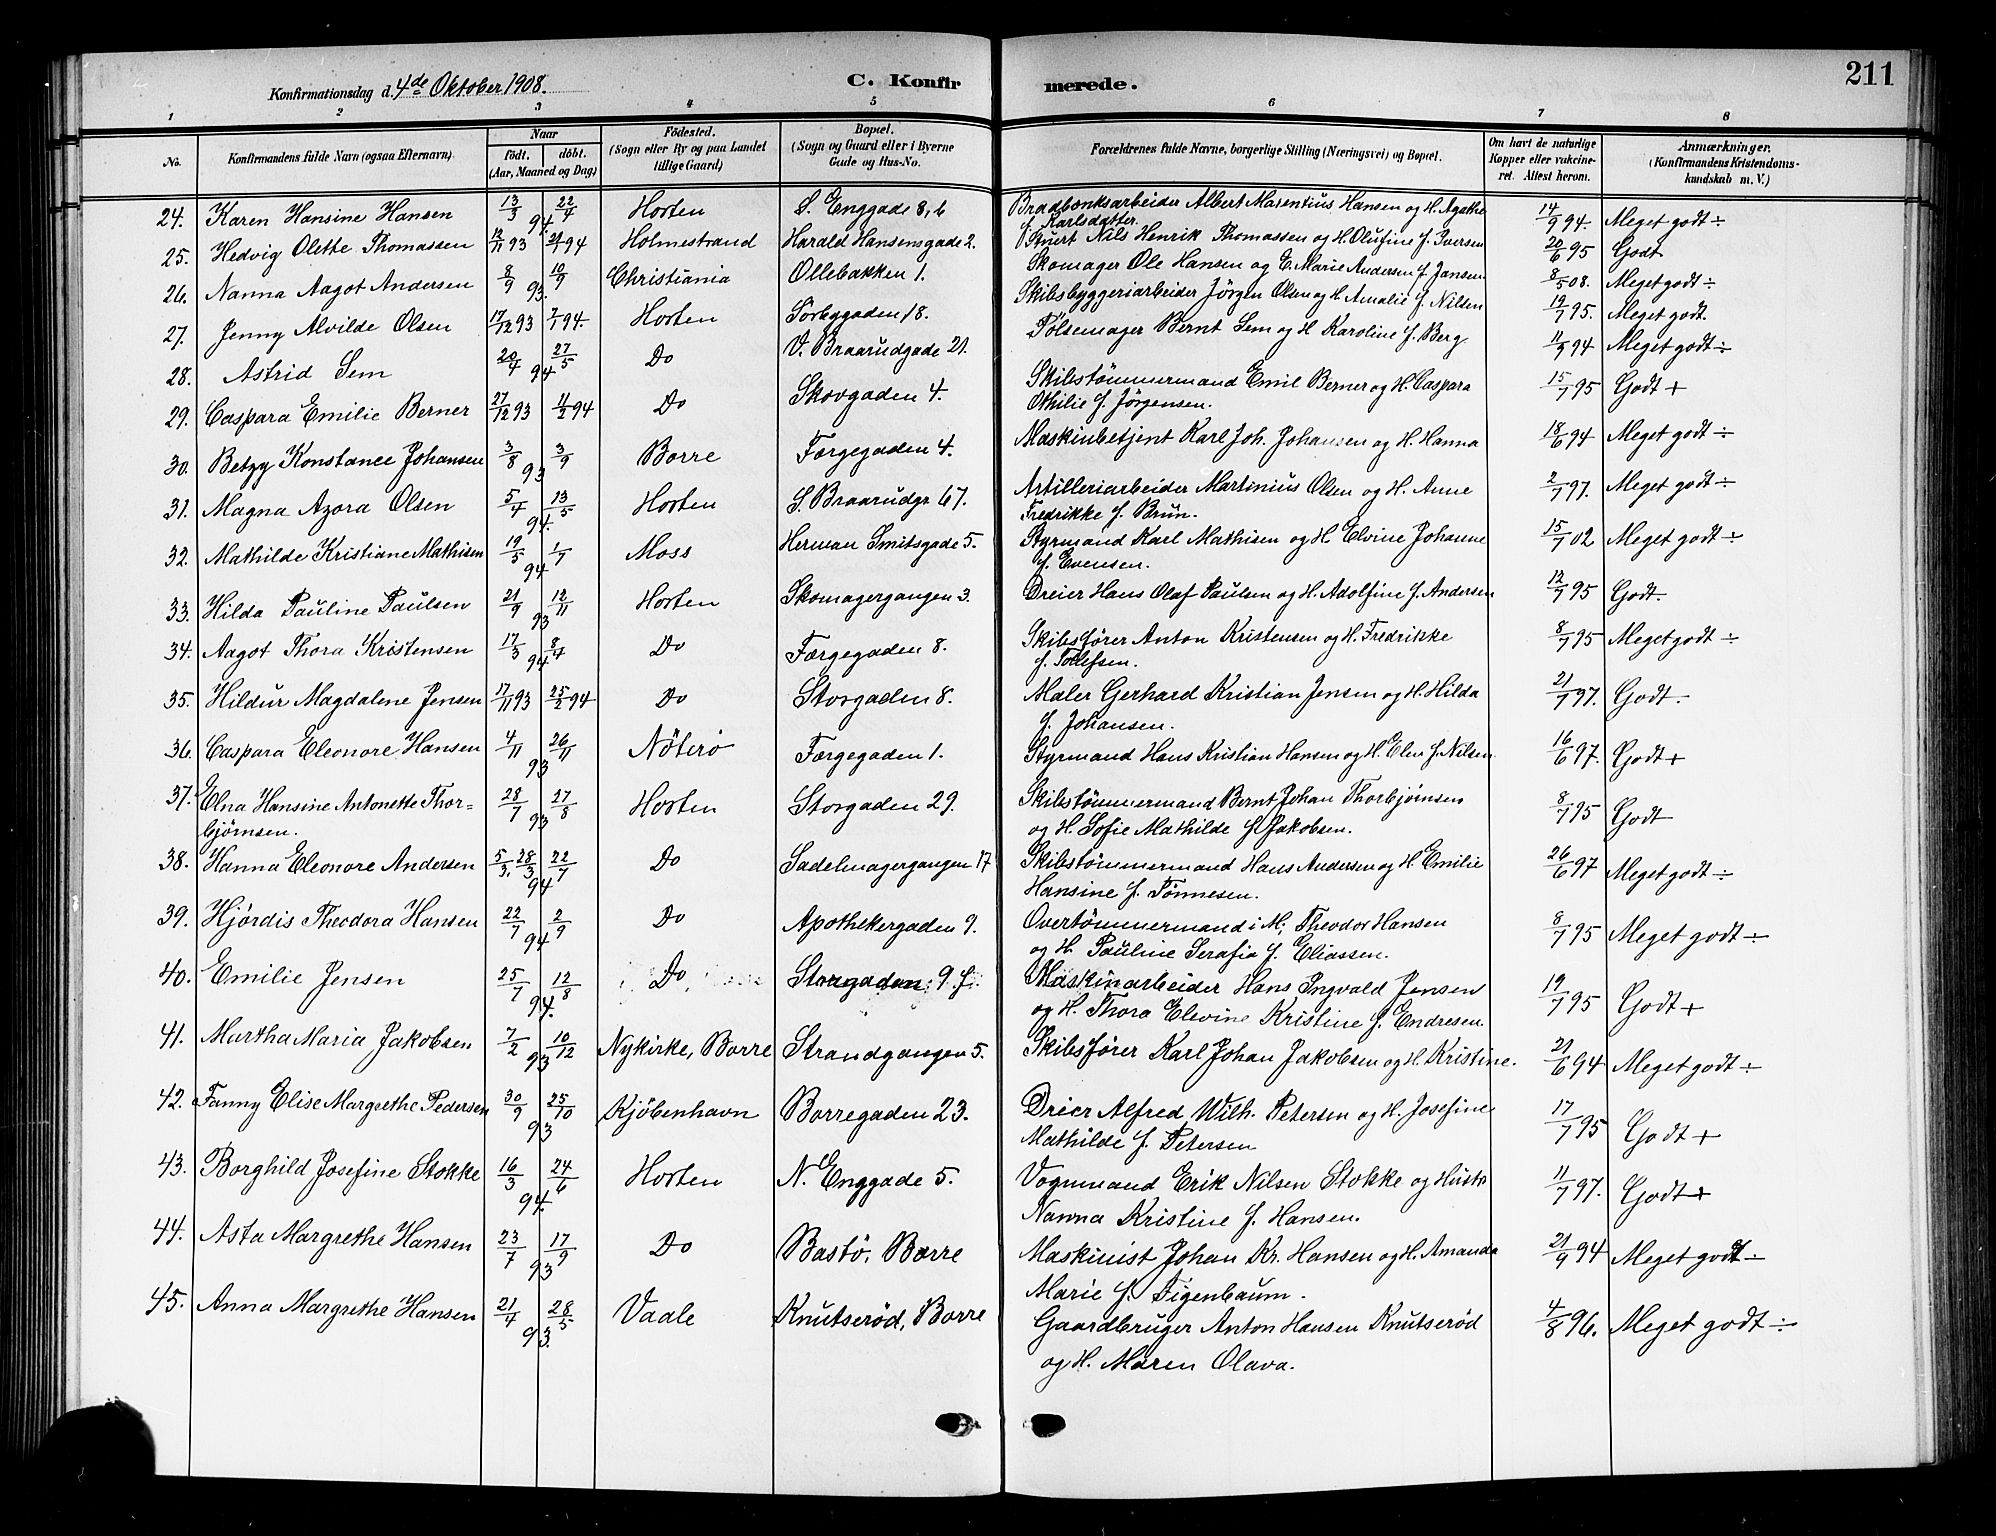 Konfirmationsdag d. 4de Oktober 1908. C. Konfirmerede. 211
1 2 3 4 5 6 7 8
No. Konfirmandens fulde Navn (ogsaa Efternavn). Naar födt. döbt. (Aar, Maaned og Dag) Födested. (Sogn eller By og paa Landet tillige Gaard) Bopæl. (Sogn og Gaard eller i Byerne Gade og Hus-No. Forældrenes fulde Navne, borgerlige Stilling (Næringsvei) og Bopæl. Om havt de naturlige Kopper eller vakcineret. Attest herom. Anmærkninger. (Konfirmandens Kristendomskundskab m. V.)
24. Karen Hansine Hansen 13/3 94 22/4 Horten S. Enggade 8, b Brødbænksarbeider Albert Marentius Hansen og H. Agathe f. Karlsdatter 14/9 94. Meget godt ÷
25. Hedvig Olette Thomassen 12/11 93 21/1 94 Holmestrand Harald Hansensgade 2. Stuert Nils Henrik Thomassen og H. Olufine f. Iversen 20/6 95 Godt
26. Nanna Aagot Andersen 8/9 93. 10/9 Christiania Ollebakken 1. Skomager Ole Hansen og E. Marie Andersen f. Jansen 8/5 08. Meget godt ÷
27. Jenny Alvilde Olsen 17/12 93 7/1 94. Horten Sörbygaden 18. Skibsbyggeriarbeider Jörgen Olsen og H. Amalie f. Nilsen 19/7 95. Meget godt.
28. Astrid Sem 20/4 94 27/5 Do V. Braarudgade 21. Pölsemager Bernt Sem og H. Karoline f. Berg 11/9 94 Meget godt ÷
29. Caspara Emilie Berner 27/12 93 11/2 94 Do Skovgaden 4. Skibstömmermand Emil Berner og H. Caspara
Othilie f. Jörgensen. 15/7 95 Godt +
30. Betzy Konstance Johansen 3/8 93 3/9 Borre Færgegaden 4. Maskinbetjent Karl Joh. Johansen og H. Hanna 18/6 94 Meget godt ÷
31. Magna Azora Olsen 5/4 94. 13/5 Horten S. Braarudgr 67. Artilleriarbeider Martinius Olsen og H. Anne
Fredrikke f. Brün. 2/7 97. Meget godt ÷
32. Mathilde Kristiane Mathisen 19/5 94 1/7 Moss Herman Smitsgade 5. Styrmand Karl Mathisen og H. Elvine Johanne
f. Evensen. 15/7 02 Meget godt ÷
33. Hilda Pauline Paulsen 21/9 93 12/11 Horten Skomagergangen 3. Dreier Hans Olaf Paulsen og H. Adolfine f. Andersen 12/7 95 Godt.
34. Aagot Thora Kristensen 17/3 94 8/4 Do Færgegaden 8. Skibsförer Anton Kristensen og H. Fredrikke
f. Tollefsen. 8/7 95 Meget godt ÷
35. Hildur Magdalene Jensen 17/11 93 25/2 94 Do Storgaden 8. Maler Gerhard Kristian Jensen og H. Hilda
f. Johansen. 21/7 97. Godt.
36. Caspara Eleonore Hansen 4/11 93 26/11 Nöterö Færgegaden 1. Styrmand Hans Kristian Hansen og H. Elen f. Nilsen 16/6 97. Godt +
37. Elna Hansine Antonette Thor=
björnsen. 28/7 93 27/8 Horten Storgaden 29. Skibstömmermand Bernt Johan Thorbjörnsen
og H. Sofie Mathilde f. Jakobsen. 8/7 95 Godt
38. Hanna Eleonore Andersen 28/3 94 22/7 Do Sadelmagergangen 17 Skibstömmermand Hans Andersen og H. Emilie
Hansine f. Tönnesen. 26/6 97 Meget godt ÷
39. Hjördis Theodora Hansen 22/7 94 2/9 Do Apothekergaden 9. Overtömmermand i M. Theodor Hansen
og H. Pauline Serafia f. Eliassen. 8/7 95 Meget godt ÷
40. Emilie Jensen 25/7 94. 12/8 Do Storgaden 9 f. Maskinarbeider Hans Ingvald Jensen
og H. Thora Elevine Kristine f. Endresen. 19/7 95 Godt +
41. Martha Maria Jakobsen 7/2 93 10/12 Nykirke, Borre Strandgangen 5. Skibsförer Karl Johan Jakobsen og H. Kristine. 21/6 94 Meget godt ÷
42. Fanny Elise Margrethe Pedersen 30/9 93 25/10 Kjöbenhavn Borregaden 23. Dreier Alfred Wilh. Petersen og H. Josefine
Mathilde f. Petersen 17/7 95 Godt +
43. Borghild Josefine Stokke 16/3 94. 24/6 Horten N. Enggade 5. Vognmand Erik Nilsen Stokke og Hustr
Nanna Kristine f. Hansen. 11/7 97. Godt +
44. Asta Margrethe Hansen 23/7 93 17/9 Do Bastö, Borre Maskinist Johan Kr. Hansen og H. Amanda
Marie f. Figenbaum. 21/9 94 Meget godt ÷
45. Anna Margrethe Hansen 21/4 93. 28/5 Vaale Knutseröd, Borre Gaardbruger Anton Hansen Knutseröd
og H. Maren Olava. 4/8 96. Meget godt ÷